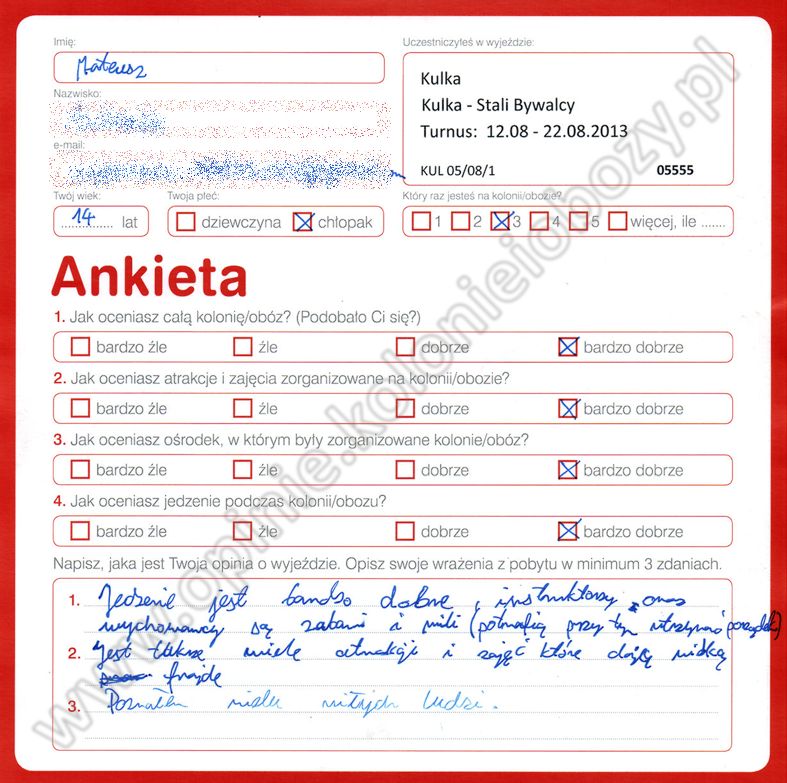 Imię:
Mateusz
Uczestniczyłeś w wyjeździe:
Kulka
Kulka - Stali Bywalcy
Turnus: 12.08 - 22.08.2013
KUL 05/08/1 05555
Nazwisko:
e-mail:
Twój wiek:
14 lat
Twoja płeć:
dziewczyna chłopak
Który raz jesteś na kolonii/obozie?
1 2 3 4 5 więcej, ile .......
Ankieta
1. Jak oceniasz całą kolonię/obóz? (Podobało Ci się?)
bardzo źle źle dobrze bardzo dobrze
2. Jak oceniasz atrakcje i zajęcia zorganizowane na kolonii/obozie?
bardzo źle źle dobrze bardzo dobrze
3. Jak oceniasz ośrodek, w którym były zorganizowane kolonie/obóz?
bardzo źle źle dobrze bardzo dobrze
4. Jak oceniasz jedzenie podczas kolonii/obozu?
bardzo źle źle dobrze bardzo dobrze
Napisz, jaka jest Twoja opinia o wyjeździe. Opisz swoje wrażenia z pobytu w minimum 3 zdaniach.
1. Jedzenie jest bardzo dobre, instruktorzy oraz
wychowawcy są zabawni i mili (potrafią przy tym utrzymać porządek)
2. Jest także wiele atrakcji i zajęć które dają wielką
frajdę
3. Poznałem wielu miłych ludzi.
www.opinie.kolonieiobozy.pl